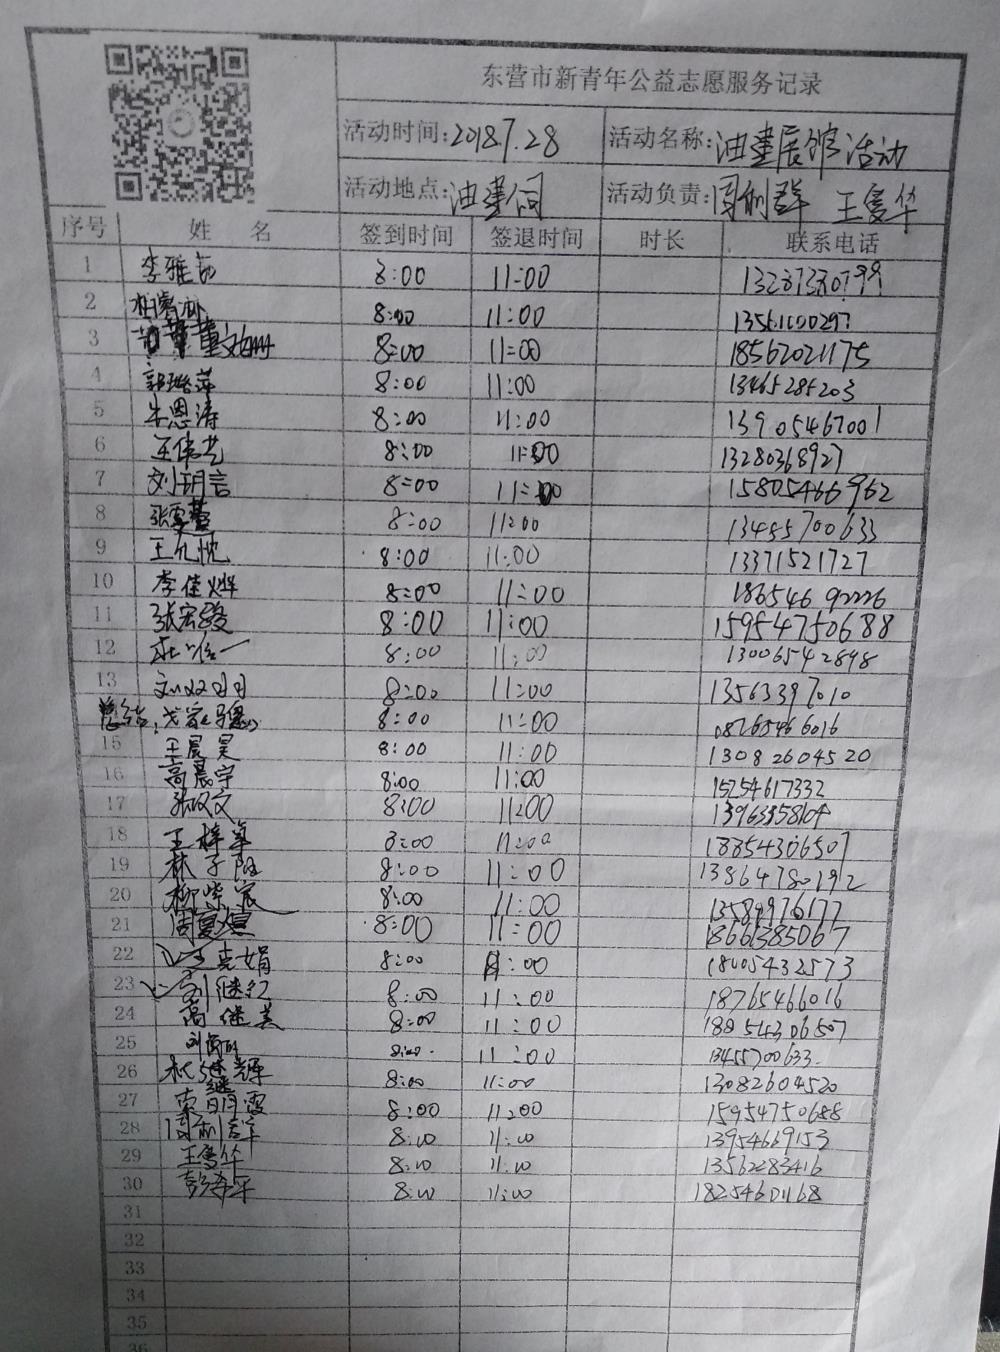 东营市新青年公益志愿服务记录
活动时间:2018.7.28 活动名称:油建展馆活动
活动地点:油建公司 活动负责:周利群 王复华
序号 姓名 签到时间 签退时间 时长 联系电话
1 李雅茹 8:00 11:00
2 8:00 11:00
3 董文姗 8:00 11:00 18562021175
4 郭璐萍 8:00 11:00 13465285203
5 朱恩涛 8:00 11:00 13905467001
6 王伟艺 8:00 11:00 13280368927
7 刘玥言 8:00 11:00 15805466962
8 张雯萱 8:00 11:00 13455700633
9 王允忱 8:00 11:00 13371521727
10 李佳烨 8:00 11:00 18654692226
11 张宏毅 8:00 11:00 15954750688
12 8:00 11:00 13006542898
13 刘双月 8:00 11:00 13563397010
8:00 11:00
15 王晨昊 8:00 11:00 13082604520
16 高晨宇 8:00 11:00 15254617332
17 张双文 8:00 11:00
18 王梓箪 8:00 11:00 18854306507
19 林子阳 8:00 11:00 13864780192
20 柳紫宸 8:00 11:00 13589976177
21 周复煊 8:00 11:00
22 王克娟 8:00 11:00 18605432573
23 刘继红 8:00 11:00 18765466016
24 高继美 8:00 11:00 18854306507
25 8:00 11:00 13455700633
26 杜继辉 8:00 11:00 13082604520
27 索明霞 8:00 11:00 15954750688
28 周利群 8:00 11:00 13954669153
29 王复华 8:00 11:00 13562283416
30 彭寿平 8:00 11:00 18254601168
31
32
33
34
35
36